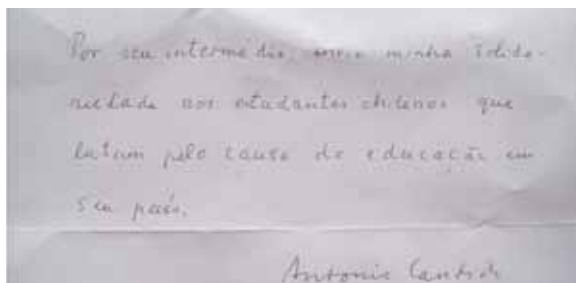 Por seu intermédio, envio minha solida-
riedade aos estudantes chilenos que
lutam pela causa da educação em
seu país.
Antonio Candido